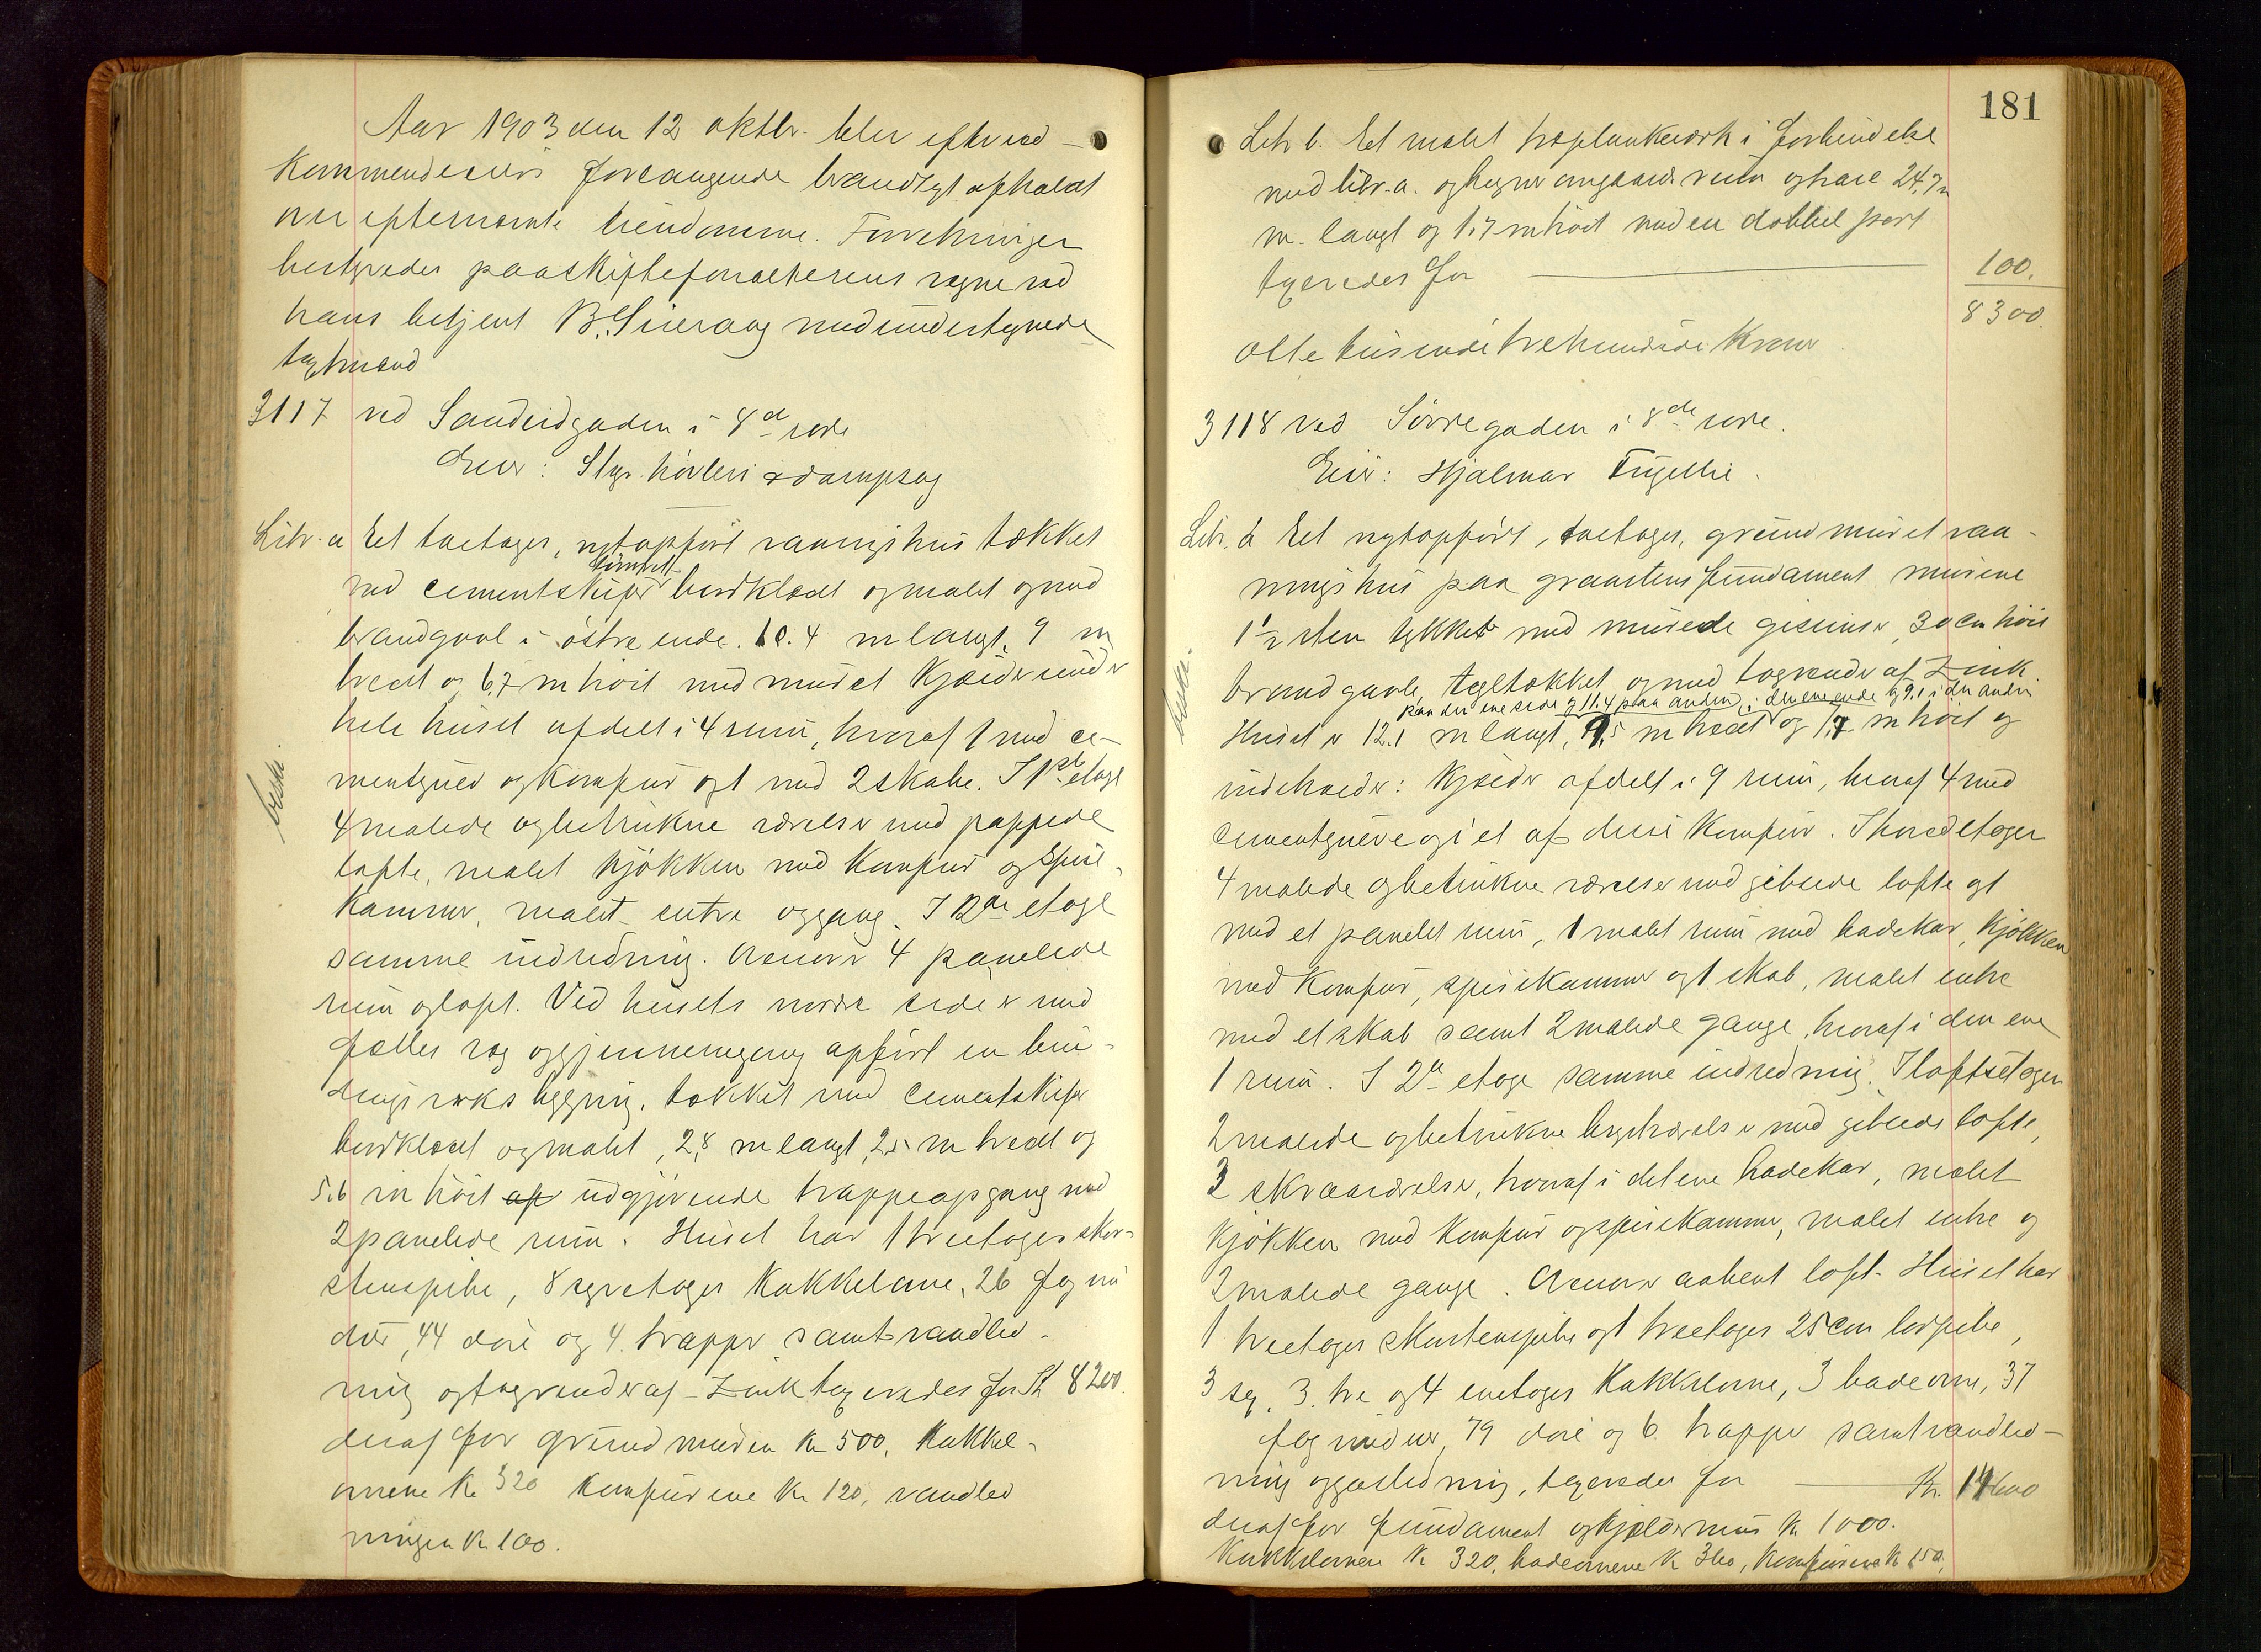 Aar 1903 den 12 oktbr. blev efter ved-
kommendes foregaaende brandtagt afholdt
over efternævnte eiendomme. Forretningen
bestyredes paa skifteforvalterens vegne ved
hans betjent B. Sinerang med undertegnede
tagtmænd
3117 ved Sandeidgaden i 8d rode
Eier: Stgr. høvleri & dampsag
Litr. a Et toetages, nytopført vaaningshus tækket
tømret
med cementskifer bordklædt og malet og med
brandgavl i østre ende. 10.4 m langt, 9 m
bredt og 6,7 m høit med muret kjælder under
hele huset afdelt i 4 rum, hvoraf 1 med ce-
mentgulv og komfur og 1 med 2 skabe. I 1ste etage
4 malede og betrukne værelser med pappede
lofte, malet kjøkken med komfur og spise-
kammer, malet entre og gang. I 2den etage
samme indredning. Ovenover 4 panelede
rum og loft. Ved husets nordre side er med
fælles væg og gjennemgang opført en bin-
dingsværks bygning, tækket med cementskifer
bordklædt og malet, 2,8 m langt, 2,5 m bredt og
5.6 m høit af udgjørende trappeopgang med
2 panelede rum. Huset har 1 treetages skor-
stenspibe, 8 syvetages kakkelovne, 26 fag vin-
duer, 44 døre og 4 trapper samt vandled-
ning og tagrender af zink tageredes for Kr 8200.
deraf for grundmuren kr 500, kakkel-
ovnene kr 320 komfurene kr 120, vandled
ningen kr 100.
besk.
181
Litr b. Et malet træplankeværk i forbindelse
med litr. a. og hegner om gaards rum og have 24,7
m. langt og 1.7 m høit med en dobbel port
tageredes for 100.
8300.
Otte tusinde trehundrede kroner.
3118 ved Sørregaden i 8de rode.
Eier: Hjalmar Tugellie.
Litr. a Et nytopført, toetages, grundmuret vaa-
ningshus paa graastens fundament murene
1½ sten tykke med murede gesimser, 30 cm høie
brandgavle, tegltækket og med tagrender af zink.
paa den ene side og 11.4 paa anden, i den ene ende og 9.1 i den anden
Huset er 12.1 m langt, 9,5 m bredt og 7,7 m høit og
indeholder: kjælder afdelt i 9 rum, heraf 4 med
cementgulve og i et af disse komfur. I hoved etagen
4 malede og betrukne værelser med gibsede lofte og 1
med et panelet rum, 1 malet rum med badekar, kjøkken
med komfur, spisekammer og 1 skab, malet entre
med et skab samt 2 malede gange, hvoraf i den ene
1 rum. I 2den etage samme indredning. I loftsetagen
2 malede og betrukne kvistværelser med gibsede lofte,
3 skraaværelser, hvoraf i det ene badekar, malet
kjøkken med komfur og spisekammer, malet entre og
2 malede gange. Ovenover aabent loft. Huset har
1 treetages skorstenspibe og 1 treetages 25 cm luftpibe,
3 sex, 3 tre og 4 enetages kakkelovne, 3 badeovne, 37
fag vinduer, 79 døre og 6 trapper samt vandled-
ning og gasledning, tageredes for Kr. 14600
deraf for fundament og kjældermur kr 1000.
kakkelovnen kr 320, badeovnene kr 360, komfurene kr 150,
besk.